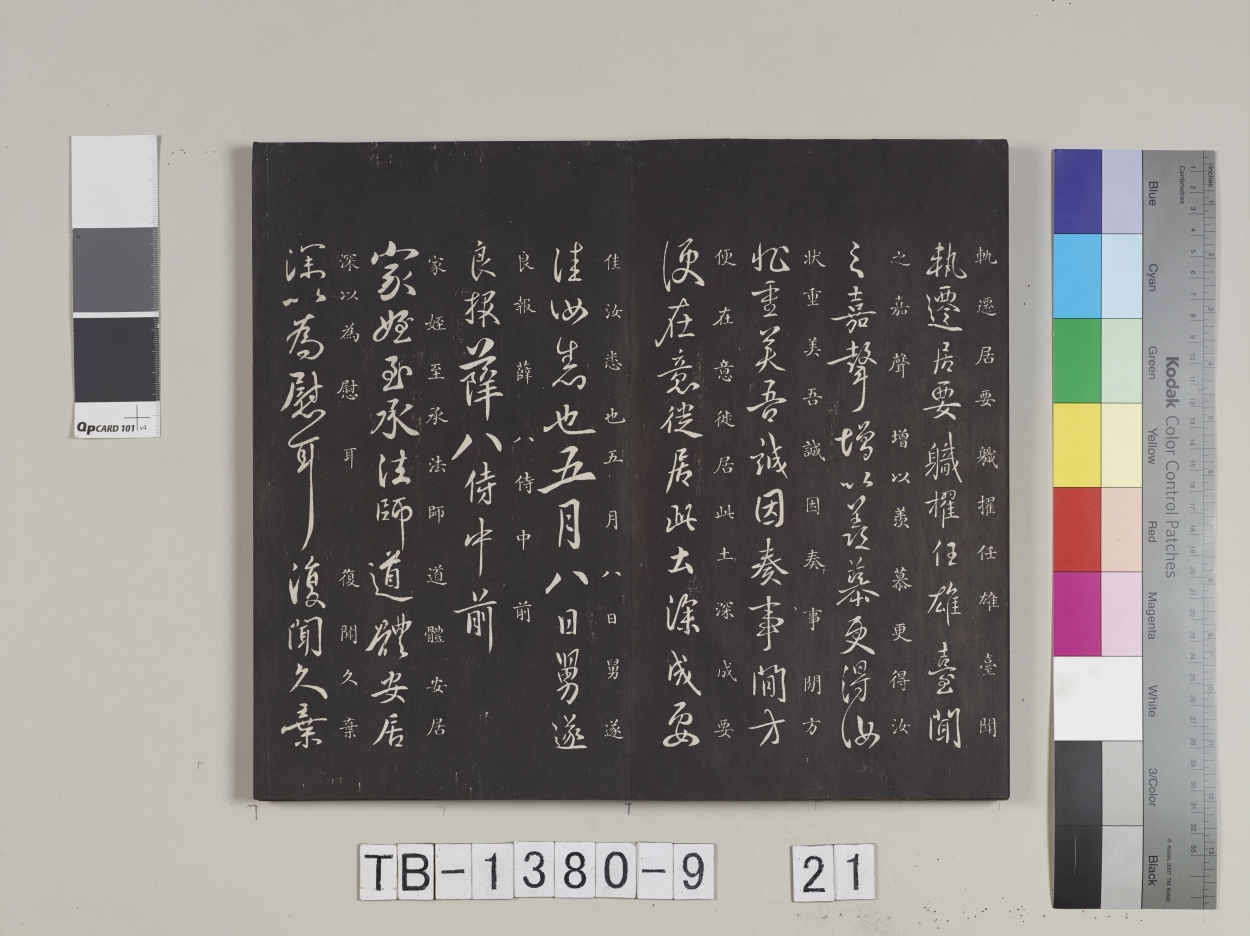 軌遷居要軄擢任雄臺聞
軌遷居要軄擢任雄臺聞
之嘉聲增以羨慕更得汝
之嘉聲增以羨慕更得汝
狀重美吾誠因奏事閒方
狀重美吾誠因奏事閒方
便在意徙居此土深成要
便在意徙居此土深成要
佳汝悉也五月八日舅遂
佳汝悉也五月八日舅遂
良報薛八侍中前
良報薛八侍中前
家姪至承法師道體安居
家姪至承法師道體安居
深以為慰耳復聞久棄
深以為慰耳復聞久棄
TB-1380-9 21
QpCARD 101 v4
Kodak Color Control Patches
Blue
Cyan
Green
Yellow
Red
Magenta
White
3/Color
Black
Inches
Centimetres